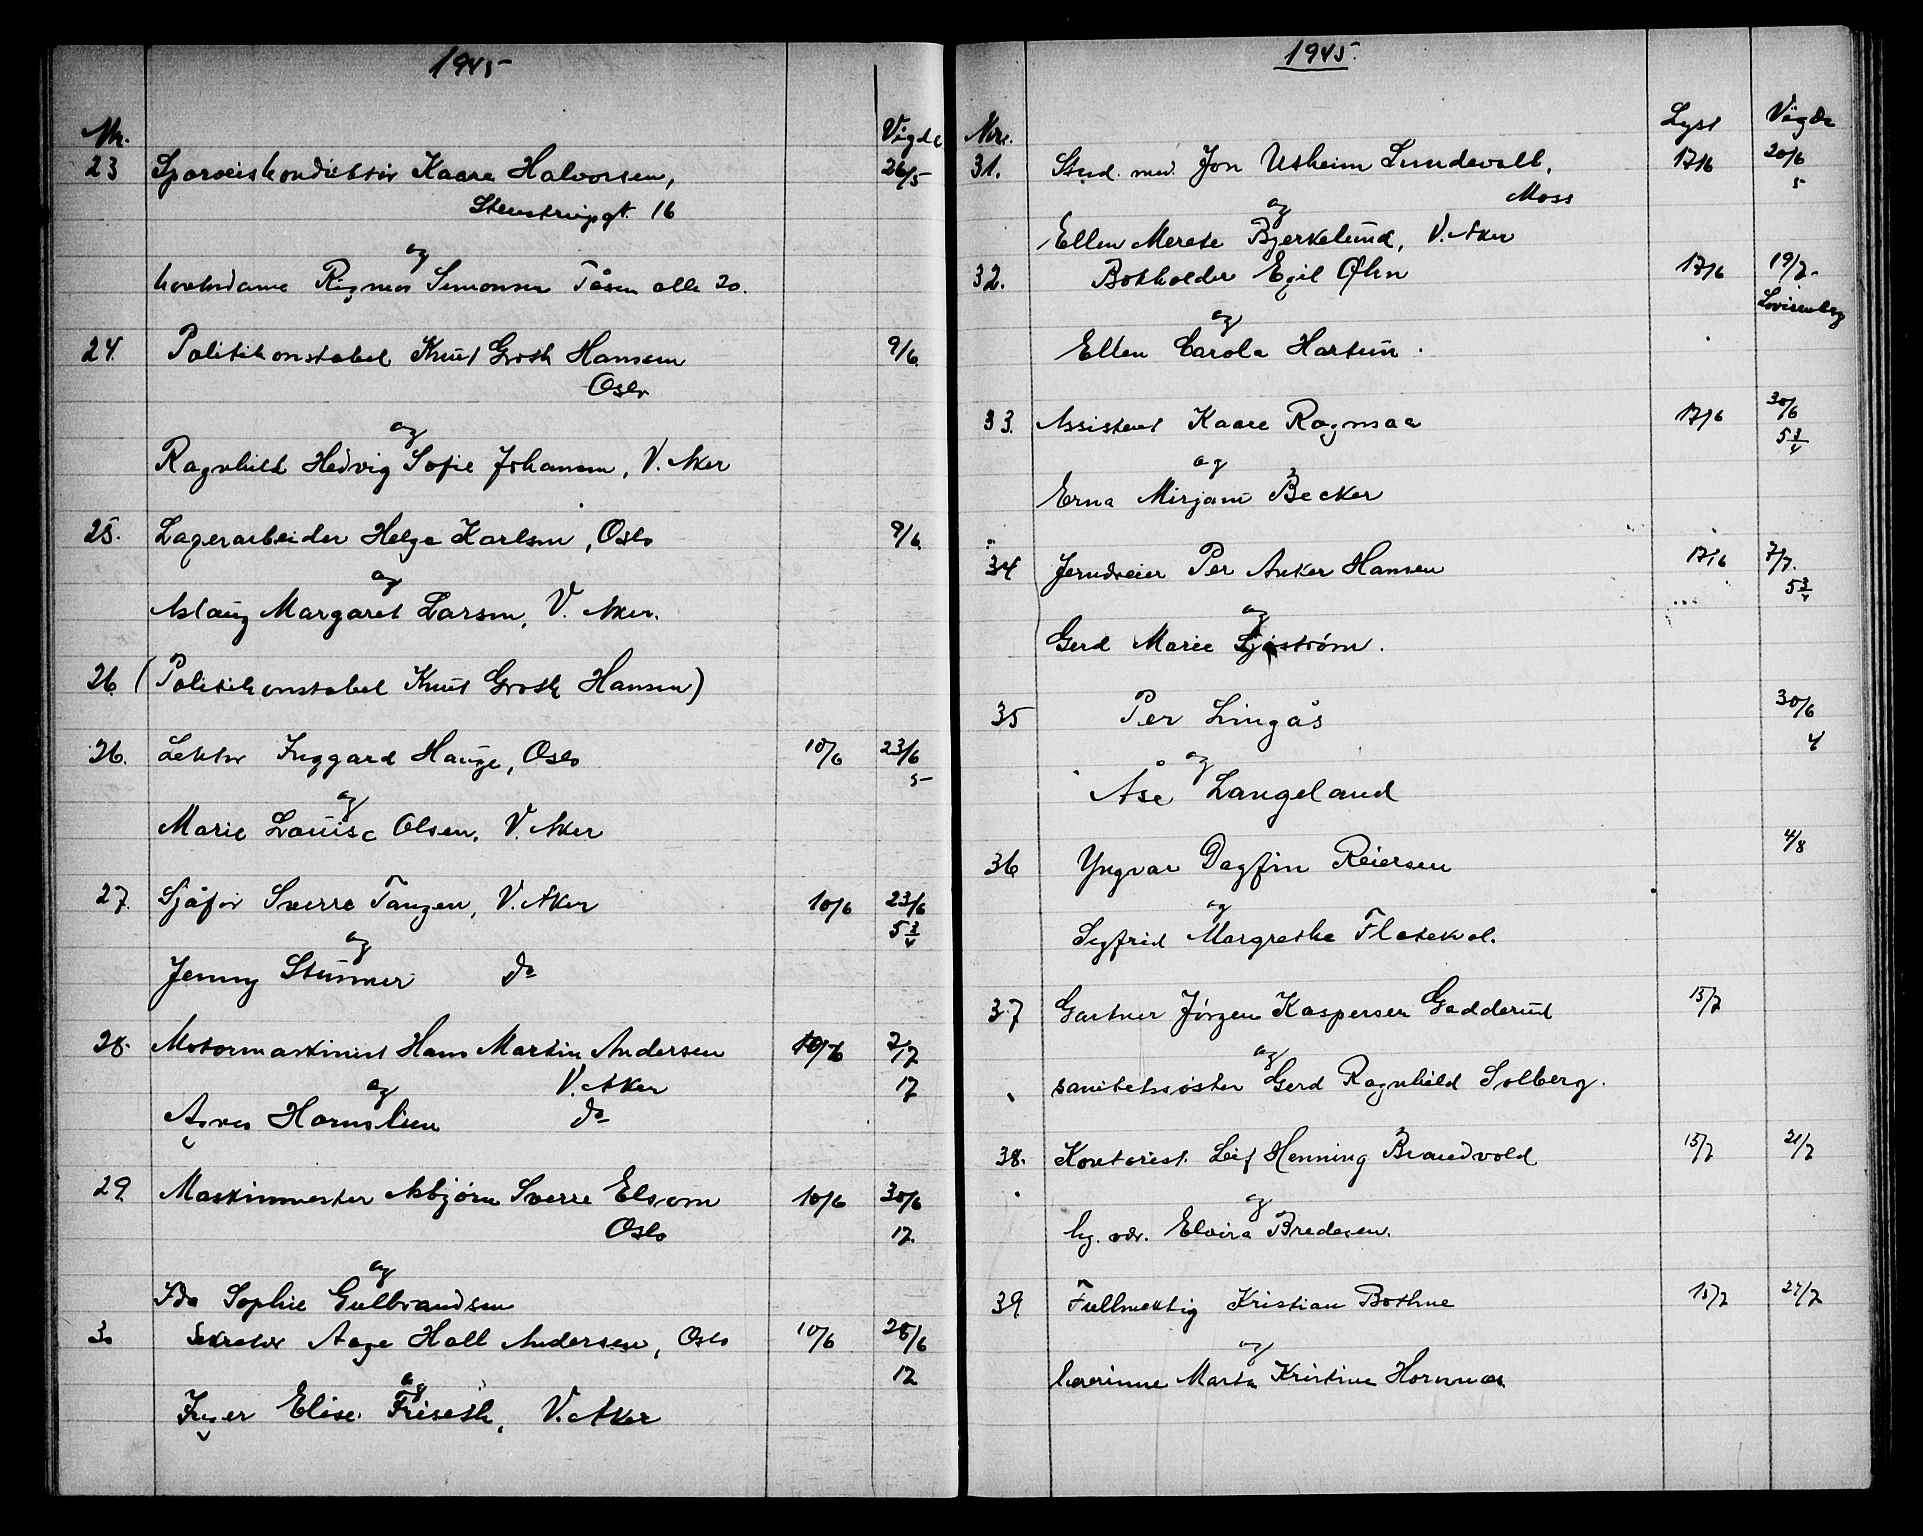 1945
Nr. Vigde
23 Sporveiskonduktør Kaare Halvorsen, 26/5
Stenstrupgt. 16
og
kontordame Rigmor Simonsen Tåsen alle 20.
24. Politikonstabel Knut Groth Hansen 9/6
Oslo
og
Ragnhild Hedvig Sofie Johansen, V. Aker
25. Lagerarbeider Helge Karlsen, Oslo 9/6
og
Aslaug Margaret Larsen, V. Aker.
26. (Politikonstabel Knut Groth Hansen)
26. Lektor Inggard Hauge, Oslo 10/6 23/6
5
og
Marie Louise Olsen, V. Aker
27. Sjåfør Sverre Tangen, V. Aker 10/6 23/6
5 3/4
og
Jenny Stürmer do
28. Motormaskinist Hans Martin Andersen 10/6 7/7
og V. Aker 17
Agnes Hornslien do
29. Maskinmester Asbjørn Sverre Elsrom 10/6 30/6
Oslo 17.
og
Ida Sophie Gulbrandsen
30 Sekretær Aage Hall Andersen, Oslo 10/6 28/6
17
og
Inger Elise Friseth, V. Aker
1945.
Nr. Lyst Vigde
31. Stud. med. Jon Utheim Lundevall, 17/6 20/6
Moss 5
og
Ellen Merete Bjerkelund, V. Aker
32. Bokholder Egil Øhn 17/6 19/7.
Lovisenberg
og
Ellen Carola Hartum.
33. Assistent Kaare Rogmaa 17/6 30/6
5 3/4
og
Erna Mirjam Becker
34 Jerndreier Per Anker Hansen 17/6 7/7.
5 3/4
og
Gerd Marie Sjøstrøm.
35 Per Lingås 30/6
4
og
Åse Langeland
36 Yngvar Dagfin Reiersen 4/8
og
Sigfrid Margrethe Flatekval.
37 Gartner Jörgen Kaspersen Gadderud 15/7
og
sanitetssøster Gerd Ragnhild Solberg.
38. Kontorist. Leif Henning Brandvold 15/7 21/7
og
hg. vær. Elvira Bredesen.
39 Fullmektig Kristian Bothne 15/7 27/7
og
lærerinne Marta Kristine Hornnæs